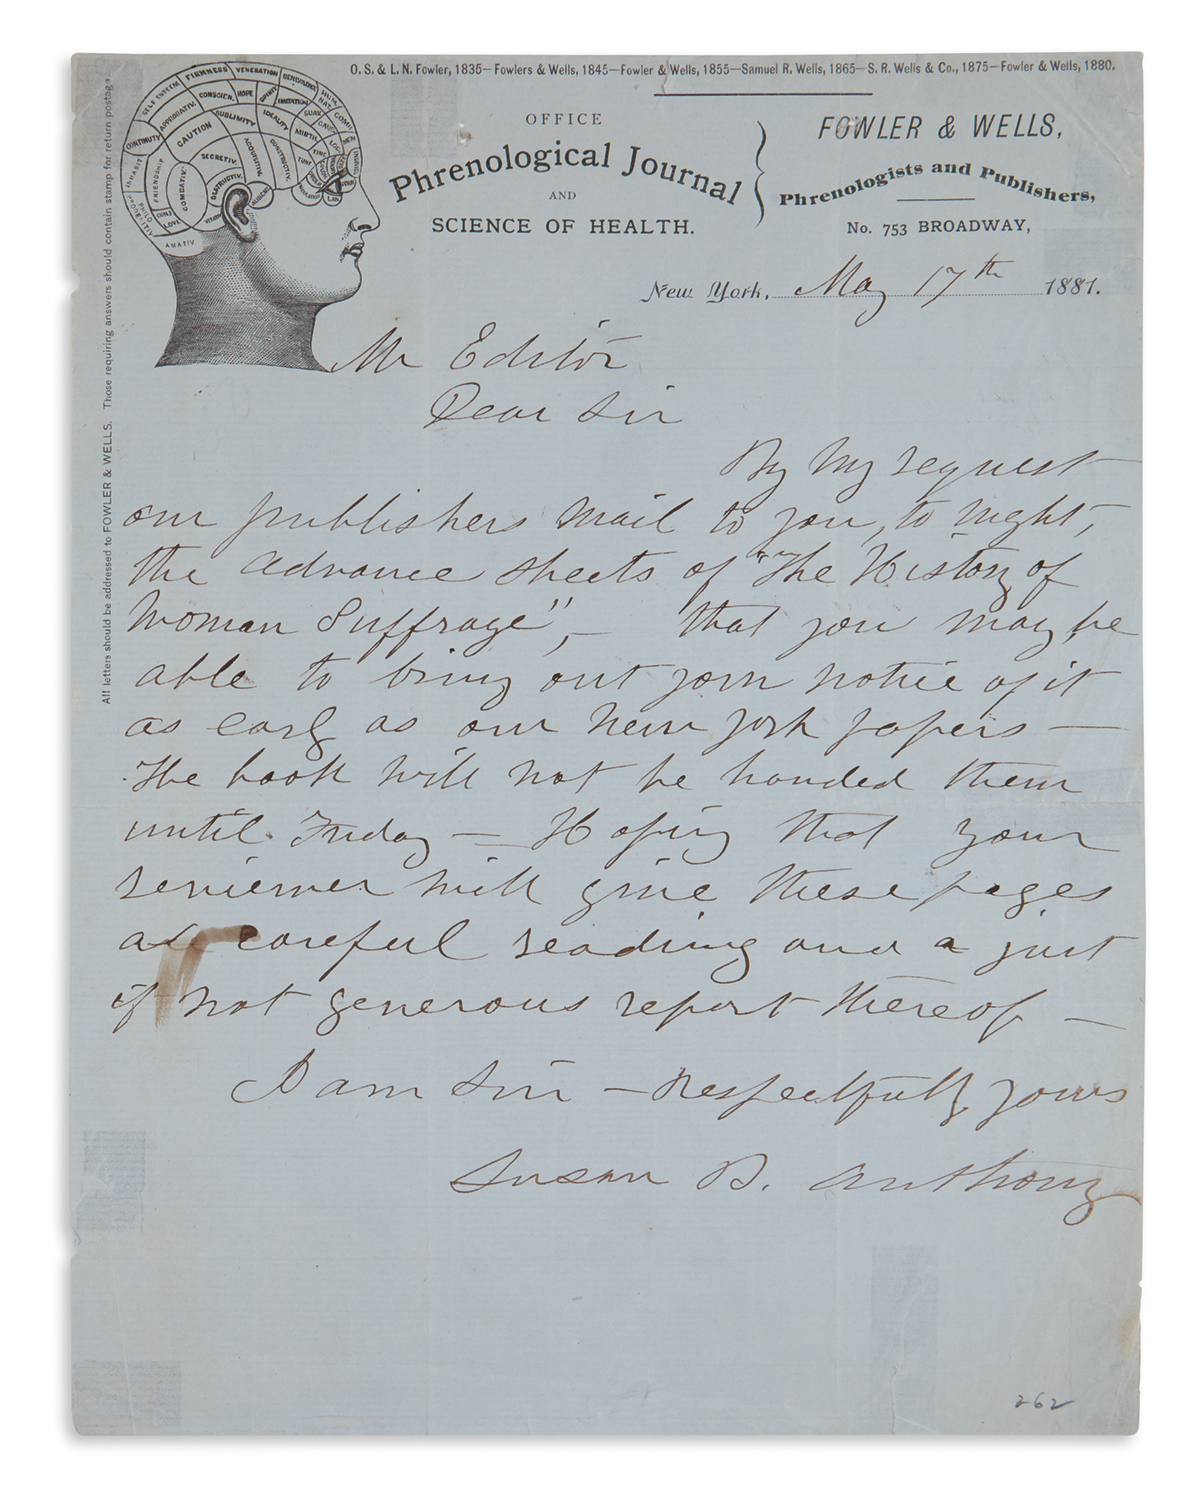 O. S. & L. N. Fowler, 1835—Fowlers & Wells, 1845—Fowler & Wells, 1855—Samuel R. Wells, 1865—S. R. Wells & Co., 1875—Fowler & Wells, 1880.
OFFICE
Phrenological Journal
AND
SCIENCE OF HEALTH.
FOWLER & WELLS,
Phrenologists and Publishers,
No. 753 BROADWAY,
New York, May 17th 1881.
All letters should be addressed to FOWLER & WELLS. Those requiring answers should contain stamp for return postage.
SELF ESTEEM
FIRMNESS
VENERATION
BENEVOLENCE
HUM. NAT.
CONTINUITY
APPROBATIV.
CONSCIEN.
HOPE
SPIRIT.
IMITATION
CAUTION
SUBLIMITY
IDEALITY
MIRTH.
SUAV.
INHABIT.
FRIENDSHIP
COMBATIV.
SECRETIV.
DESTRUCTIV.
ACQUISITIV.
CONSTRUCTIV.
TUNE
CONJ. LOVE
AMATIV.
Mr Editor
Dear Sir
By my request
our publishers mail to you, to night,
the advance sheets of "The History of
Woman Suffrage", — that you may be
able to bring out your notice of it
as early as our New York papers —
The book will not be handed them
until Friday — Hoping that your
reviewer will give these pages
a careful reading and a just
if not generous report thereof —
I am Sir — Respectfully yours
Susan B. Anthony
262